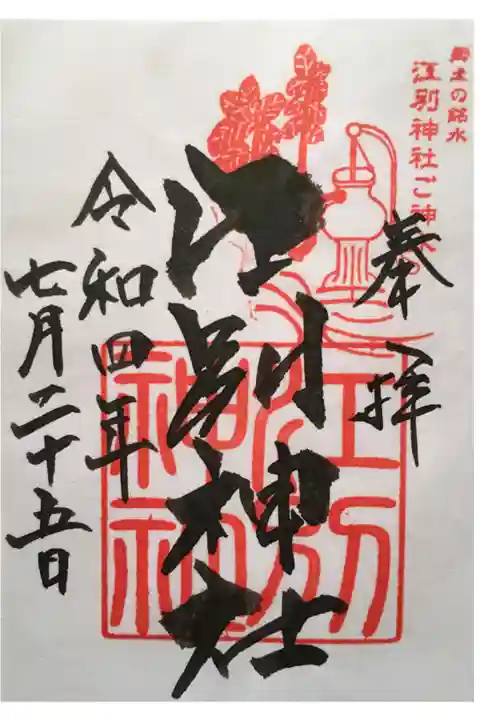 郷土の銘水
江別神社ご神水
奉拝
江別神社
江別神社
令和四年
七月二十五日